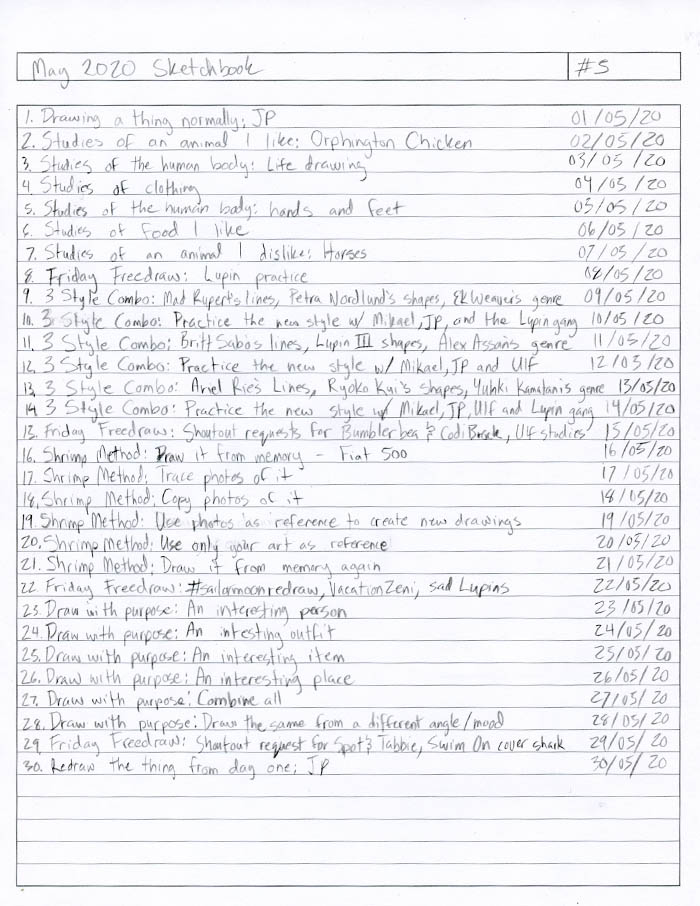 May 2020 Sketchbook #5
1. Drawing a thing normally: JP 01/05/20
2. Studies of an animal I like: Orphington Chicken 02/05/20
3. Studies of the human body: Life drawing 03/05/20
4. Studies of clothing 04/05/20
5. Studies of the human body: hands and feet 05/05/20
6. Studies of food I like 06/05/20
7. Studies of an animal I dislike: Horses 07/05/20
8. Friday Freedraw: Lupin practice 08/05/20
9. 3 Style Combo: Mad Rupert's lines, Petra Nordlund's shapes, EK Weaver's genre 09/05/20
10. 3 Style Combo: Practice the new style w/ Mikael, JP, and the Lupin gang 10/05/20
11. 3 Style Combo: Britt Sabo's lines, Lupin III shapes, Alex Assan's genre 11/05/20
12. 3 Style Combo: Practice the new style w/ Mikael, JP and Ulf 12/05/20
13. 3 Style Combo: Ariel Rie's Lines, Ryoko Kui's shapes, Yuhki Kamatani's genre 13/05/20
14. 3 Style Combo: Practice the new style w/ Mikael, JP, Ulf and Lupin gang 14/05/20
15. Friday Freedraw: Shoutout requests for Bumblerbea & Codi, Ulf studies 15/05/20
16. Shrimp Method: Draw it from memory - Fiat 500 16/05/20
17. Shrimp Method: Trace photos of it 17/05/20
18. Shrimp Method: Copy photos of it 18/05/20
19. Shrimp Method: Use photos as reference to create new drawings 19/05/20
20. Shrimp Method: Use only your art as reference 20/05/20
21. Shrimp Method: Draw it from memory again 21/05/20
22. Friday Freedraw: #sailormoonredraw, VacationZeni, sad Lupins 22/05/20
23. Draw with purpose: An interesting person 23/05/20
24. Draw with purpose: An intesting outfit 24/05/20
25. Draw with purpose: An interesting item 25/05/20
26. Draw with purpose: An interesting place 26/05/20
27. Draw with purpose: Combine all 27/05/20
28. Draw with purpose: Draw the same from a different angle/mood 28/05/20
29. Friday Freedraw: Shoutout request for Spot & Tabbie, Swim On cover shark 29/05/20
30. Redraw the thing from day one: JP 30/05/20